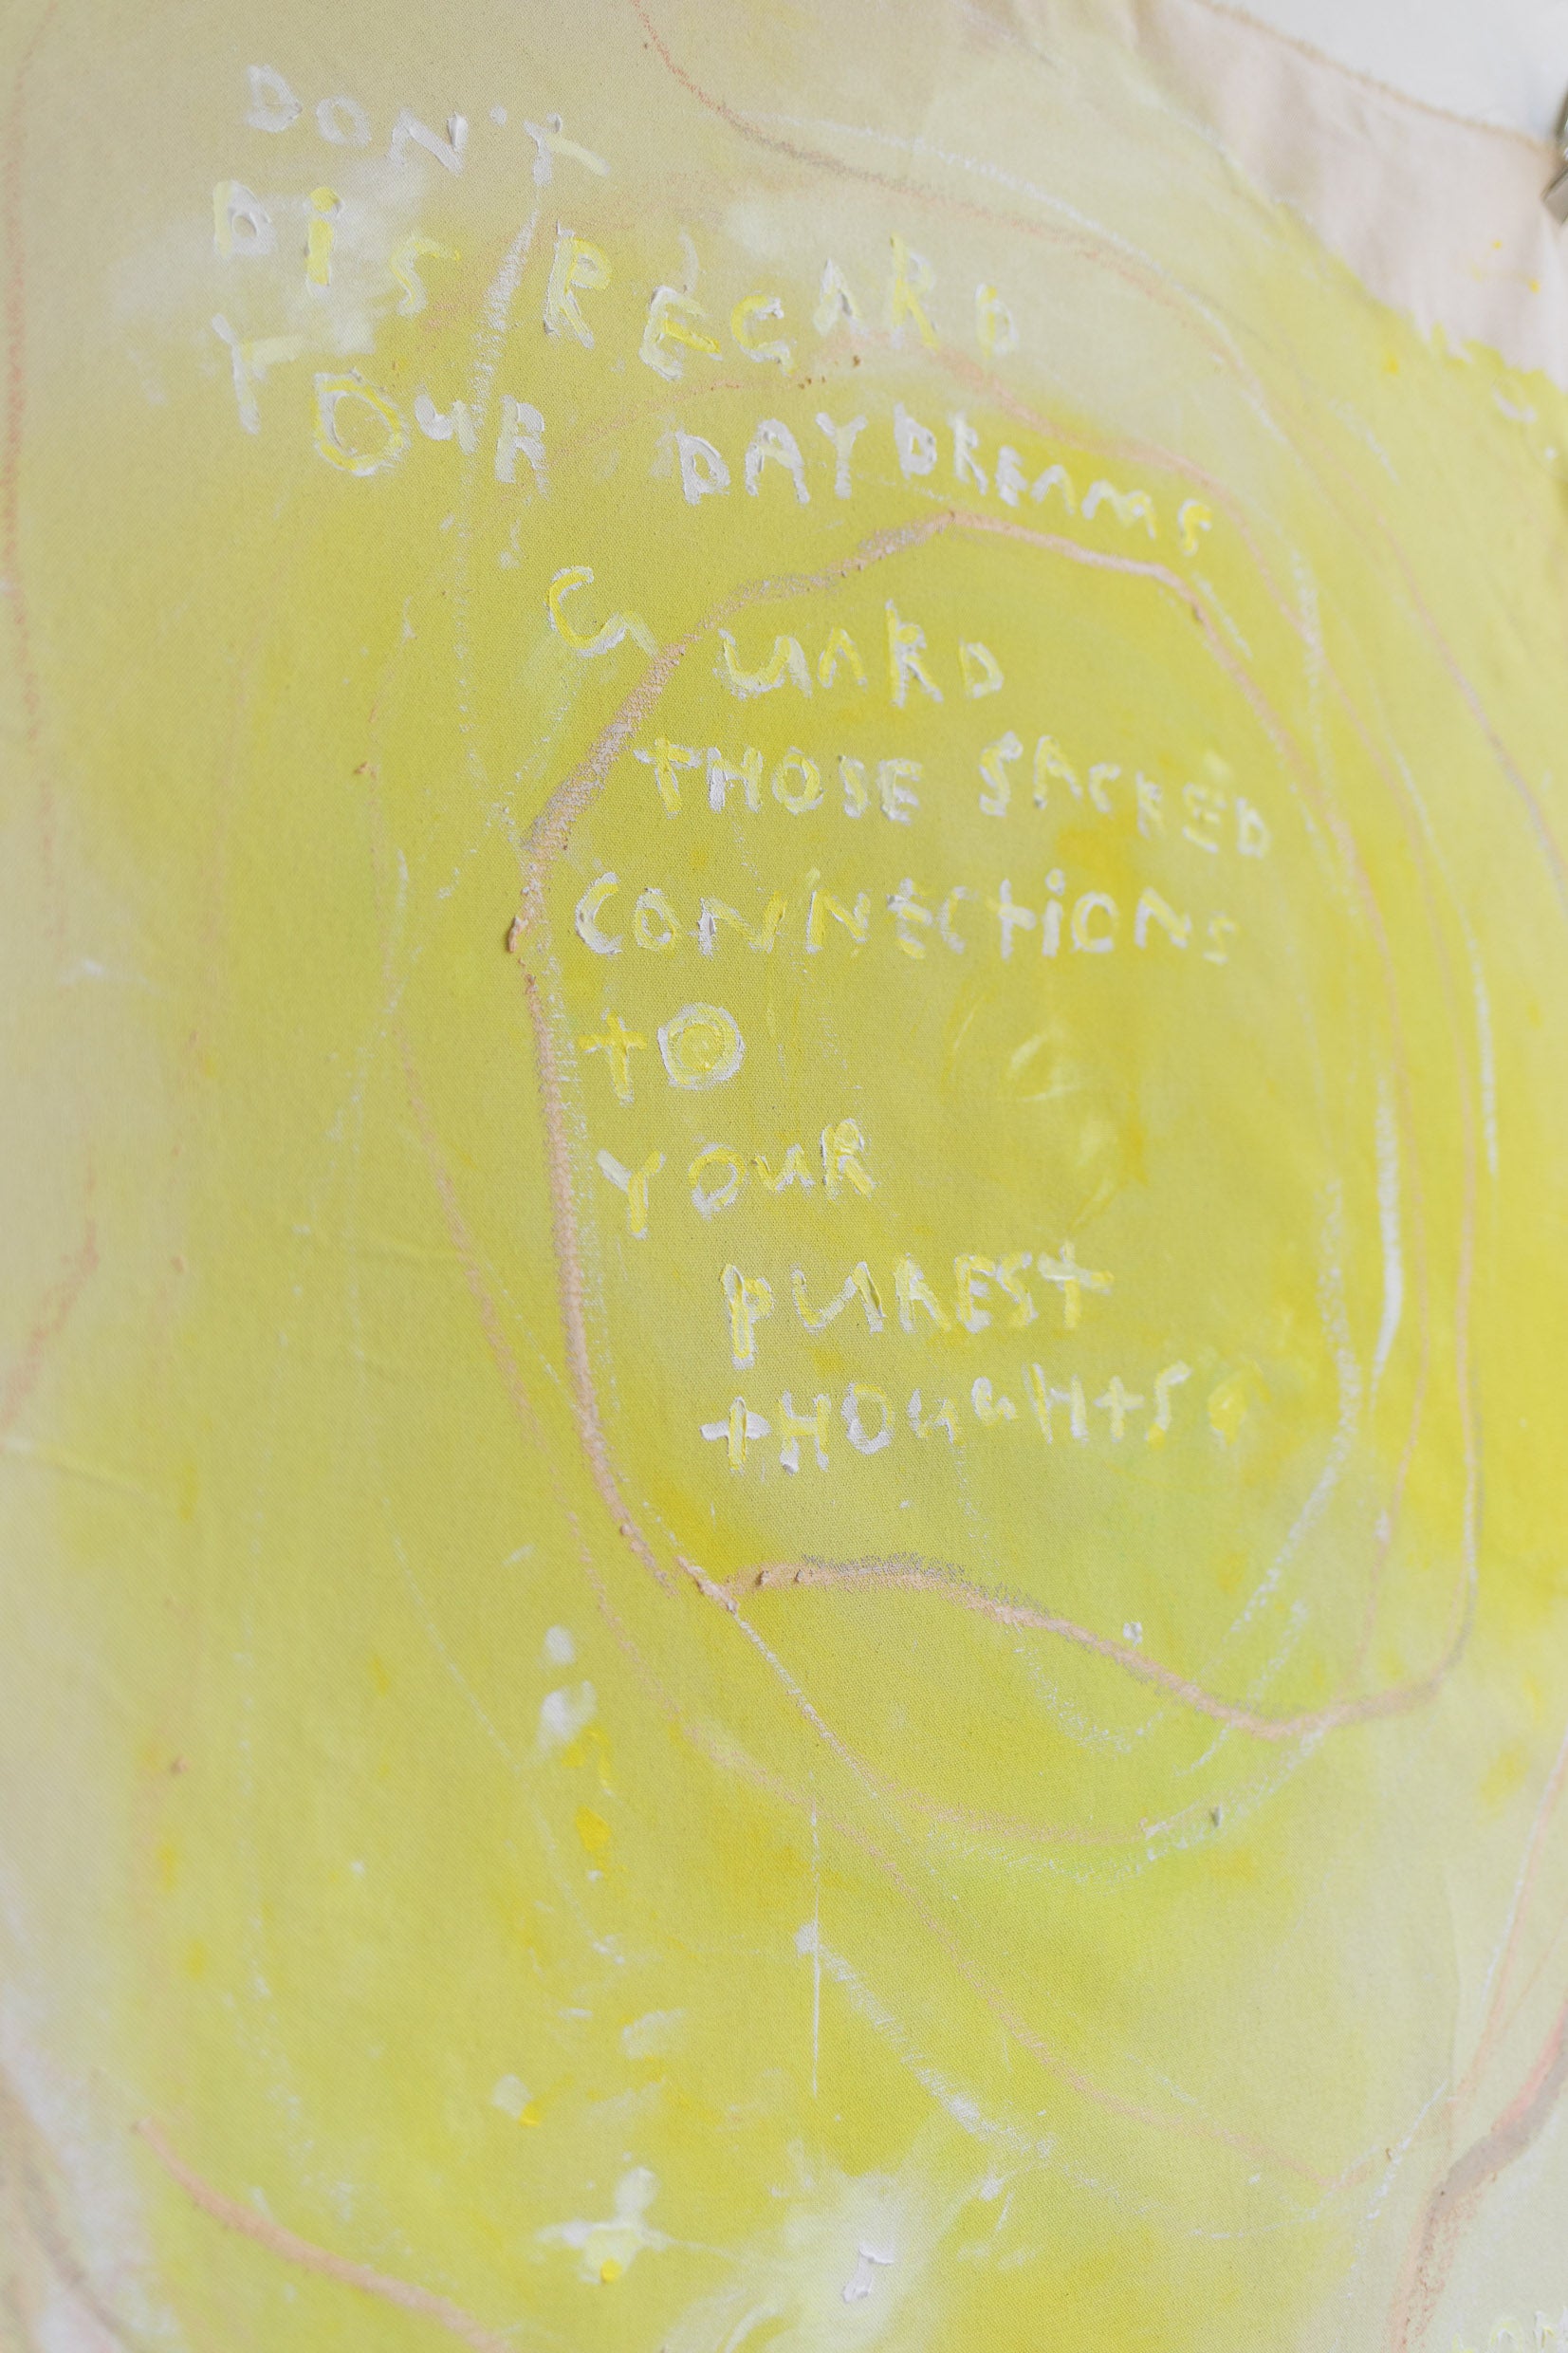 DON'T
DiSREGARD
YOuR DAYDREAMS
GuARD
tHOSE SACRED
CONNECtiONS
tO
YOuR
PuREST
tHOuGHtS